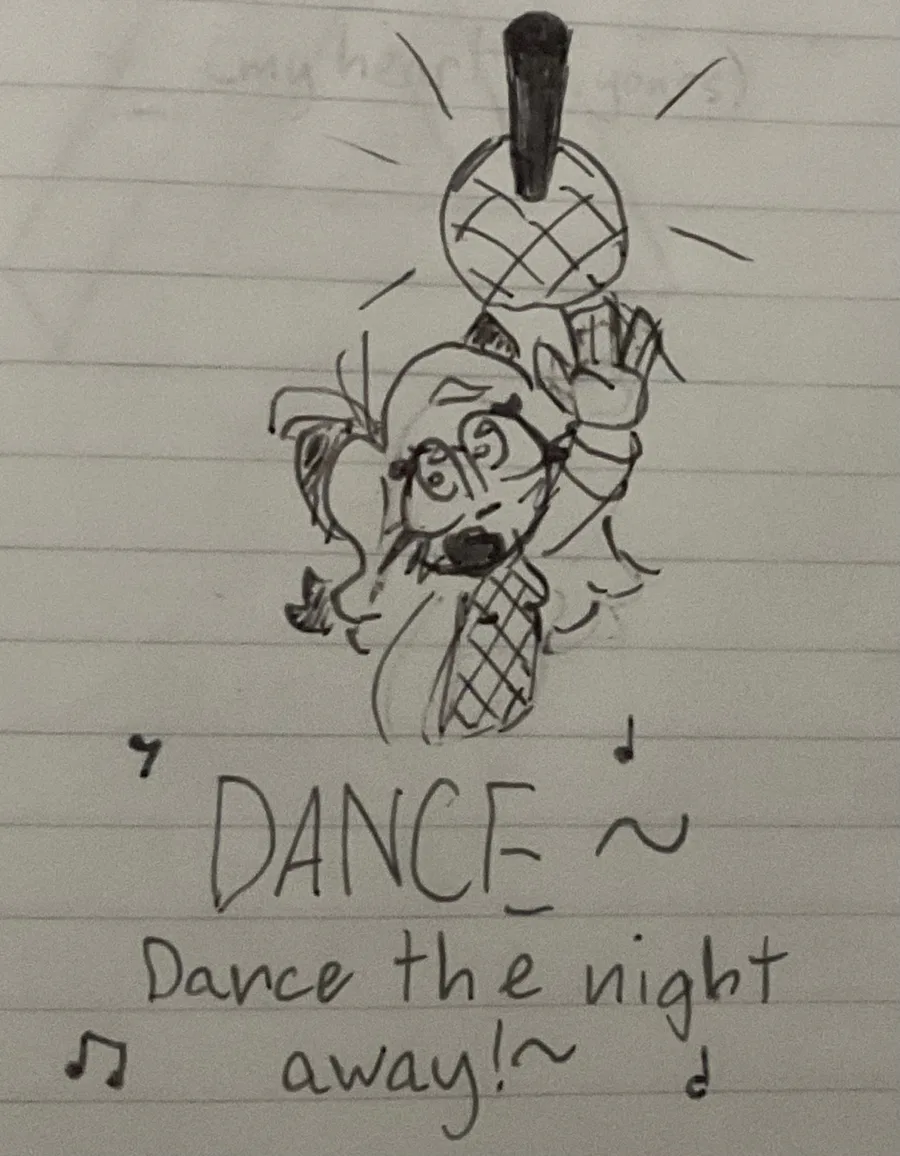 (my heart yours)
DANCE ~
Dance the night
away!~